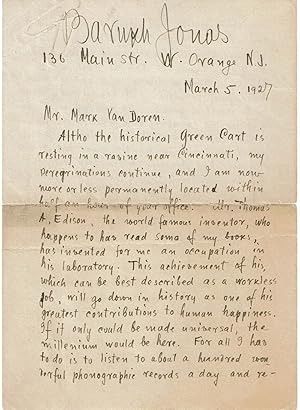 Baruch Jonas
136 Main str. W. Orange N.J.
March 5. 1927
Mr. Mark Van Doren:
Altho the historical Green Cart is
resting in a ravine near Cincinnati, my
peregrinations continue, and I am now
more or less permanently located within
half an hour of your office. Mr. Thomas
A. Edison, the world famous inventor, who
happens to has read some of my books,
has invented for me an occupation in
his laboratory. This achievement of his,
which can be best described as a workless
job, will go down in history as one of his
greatest contributions to human happiness.
If it only could be made universal, the
millenium would be here. For all I has
to do is to listen to about a hundred won
derful phonographic records a day and re-